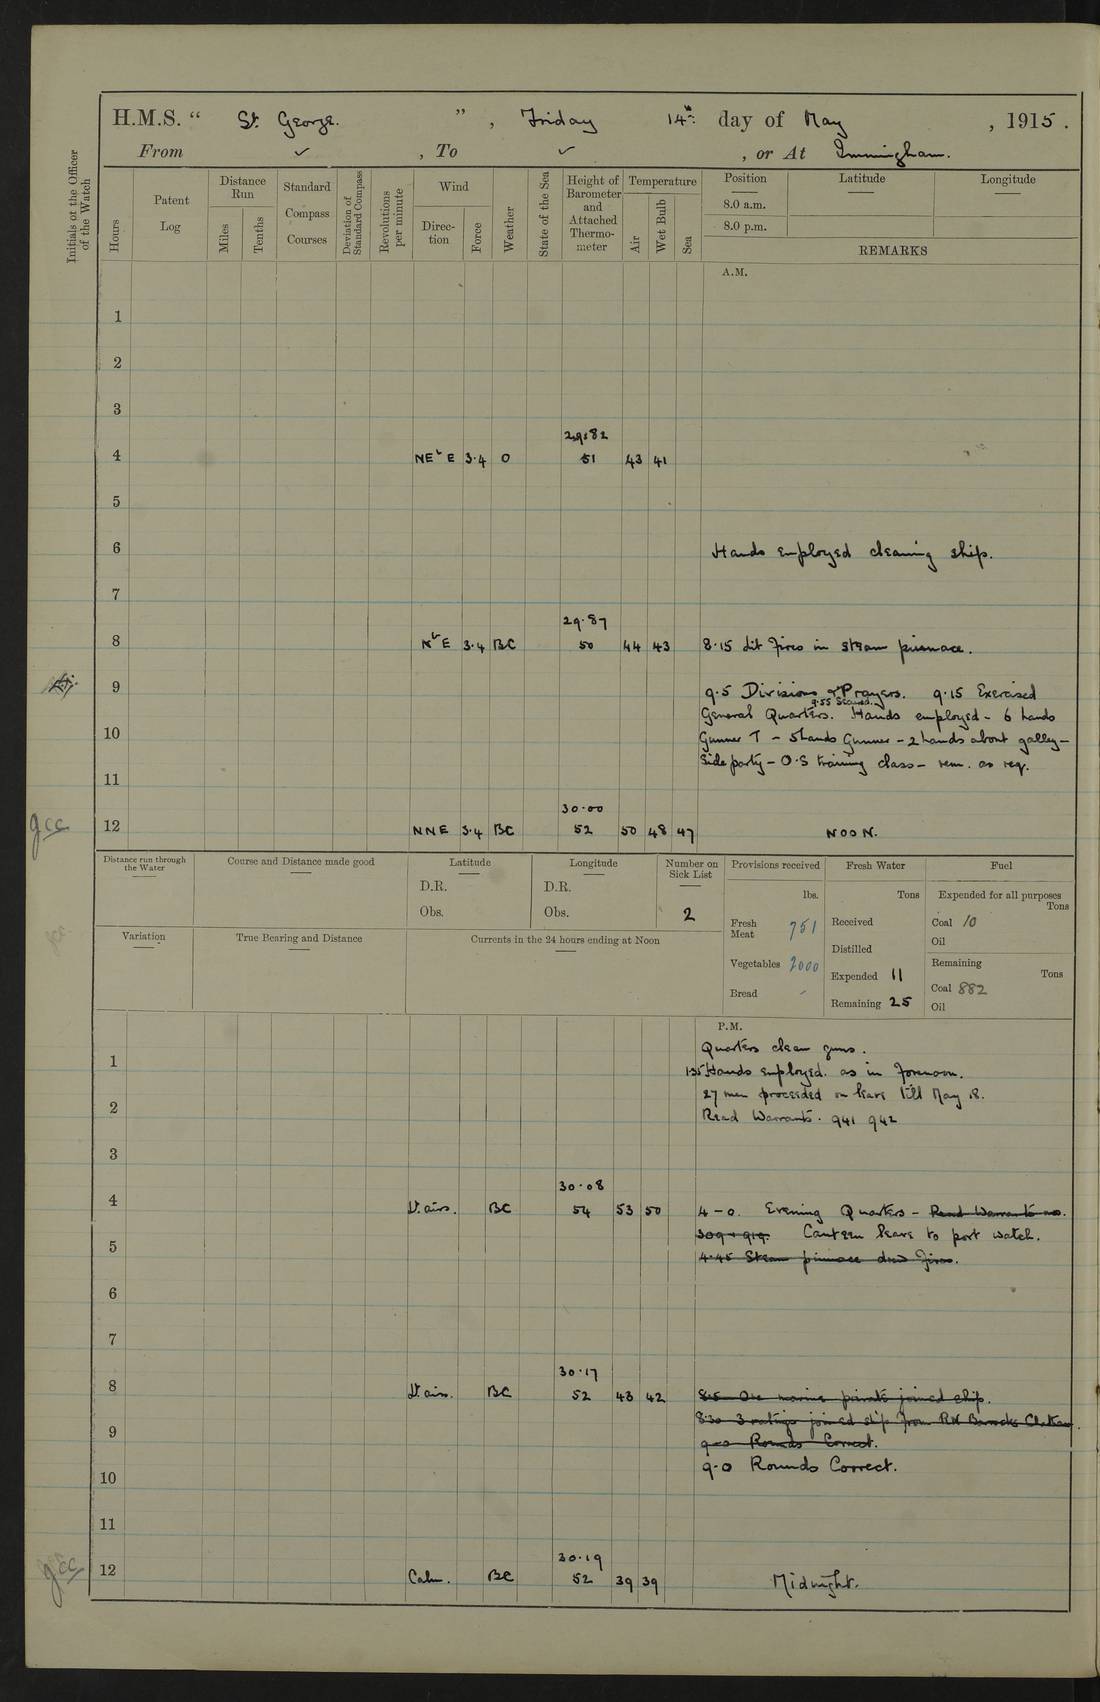 H.M.S. “ St. George. ” , Friday 14th day of May , 1915 .
From ✓ , To ✓ , or At Immingham.
Initials of the Officer of the Watch
Hours
Patent Log
Distance Run
Miles
Tenths
Standard Compass Courses
Deviation of Standard Compass
Revolutions per minute
Wind
Direc-tion
Force
Weather
State of the Sea
Height of Barometer and Attached Thermo-meter
Temperature
Air
Wet Bulb
Sea
Position Latitude Longitude
8.0 a.m.
8.0 p.m.
REMARKS
A.M.
1
2
3
29.82
4 NE b E 3.4 O 51 43 41
5
6 Hands employed cleaning ship.
7
29.87
8 N b E 3.4 BC 50 44 43 8.15 Lit fires in steam pinnace.
9 9.5 Divisions & Prayers. 9.15 Exercised
9.55 Secured.
General Quarters. Hands employed - 6 hands
10 Gunner T - 5 hands Gunner - 2 hands about galley -
Side party - O.S training class - rem. as req.
11
30.00
gcc 12 NNE 3.4 BC 52 50 48 47 NOON.
Distance run through the Water
Course and Distance made good
Latitude
D.R.
Obs.
Longitude
D.R.
Obs.
Number on Sick List
2
Provisions received
lbs.
Fresh Meat 751
Vegetables 2000
Bread -
Fresh Water
Tons
Received
Distilled
Expended 11
Remaining 25
Fuel
Expended for all purposes
Tons
Coal 10
Oil
Remaining
Tons
Coal 882
Oil
Variation
True Bearing and Distance
Currents in the 24 hours ending at Noon
P.M.
Quarters clean guns.
1 1.35 Hands employed. as in Forenoon.
27 men proceeded on leave till May 18.
2 Read Warrants. 941 942
3
30.08
4 Lt. airs. BC 54 53 50 4-0. Evening Quarters - Read Warrants no.
309 + 919. Canteen leave to port watch.
5 4.45 Steam pinnace drew fires.
6
7
30.17
8 Lt. airs. BC 52 43 42 8.5 One marine private joined ship.
8.30 3 ratings joined ship from RN Barracks Chatham.
9 9-0 Rounds Correct.
9-0 Rounds Correct.
10
11
30.19
gcc 12 Calm. BC 52 39 39 Midnight.